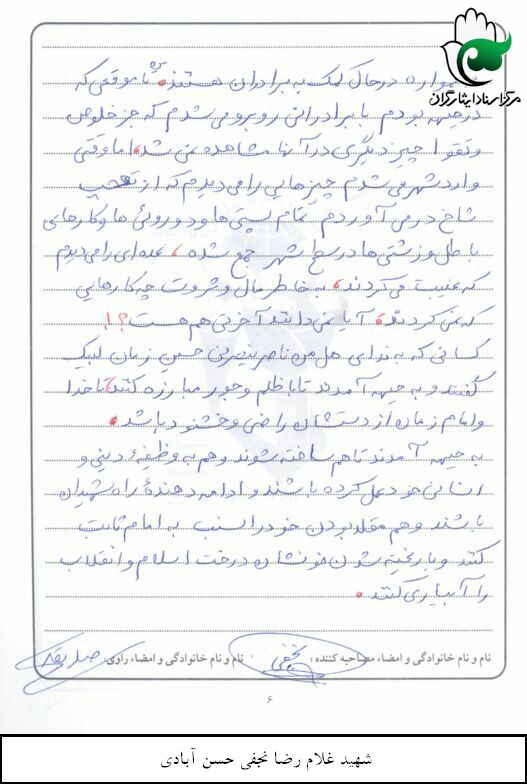 مرکز اسناد ایثارگران
همواره در حال کمک به برادران هستند. تا موقعی که
در جبهه بودم با برادرانی روبرو می شدم که جز خلوص
و تقوا چیز دیگری در آنها مشاهده نمی شد، اما وقتی
وارد شهر می شدم چیزهایی را می دیدم که از تعجب
شاخ در می آوردم تمام پستی ها و دوروئی ها و کارهای
باطل و زشتی ها در سطح شهر جمع شده، عده ای را می دیدم
که غیبت می کردند، به خاطر مال و ثروت چه کارهایی
که نمی کردند، آیا نمی دانند آخرتی هم هست؟!
کسانی که به ندای هل من ناصر ینصرنی حسین زمان لبیک
گفتند و به جبهه آمدند تا با ظلم و جور مبارزه کنند، تا خدا
و امام زمان از دستشان راضی و خشنود باشد.
به جبهه آمدند تا هم ساخته شوند و هم به وظیفهٔ دینی و
انسانی خود عمل کرده باشند و ادامه دهندهٔ راه شهیدان
باشند و هم مقلد بودن خود را نسبت به امام ثابت
کنند و با ریخته شدن خونشان درخت اسلام و انقلاب
را آبیاری کنند.
نام و نام خانوادگی و امضاء مصاحبه کننده: نجفی نام و نام خانوادگی و امضاء راوی:
۶
شهید غلام رضا نجفی حسن آبادی